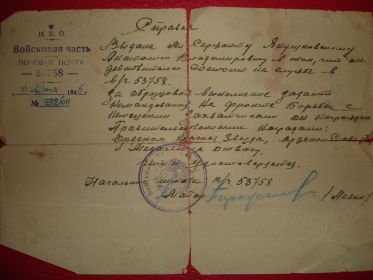 Н. К. О.
Войсковая часть
ПОЛЕВАЯ ПОЧТА
53758
1945
№ 232/011
Справка
Выдана Сержанту Якушковскому
Анатолию Владимировичу в том, что он
действительно состоит на службе в
в/ч. 53758
За образцовое выполнение заданий
командования на фронте борьбы с
Немецкими захватчиками он награжден
Правительственными наградами:
Орденом Красная Звезда, Орденом
и Медалью за отвагу.
удостоверяется.
Начальник штаба в/ч 53758
Майор